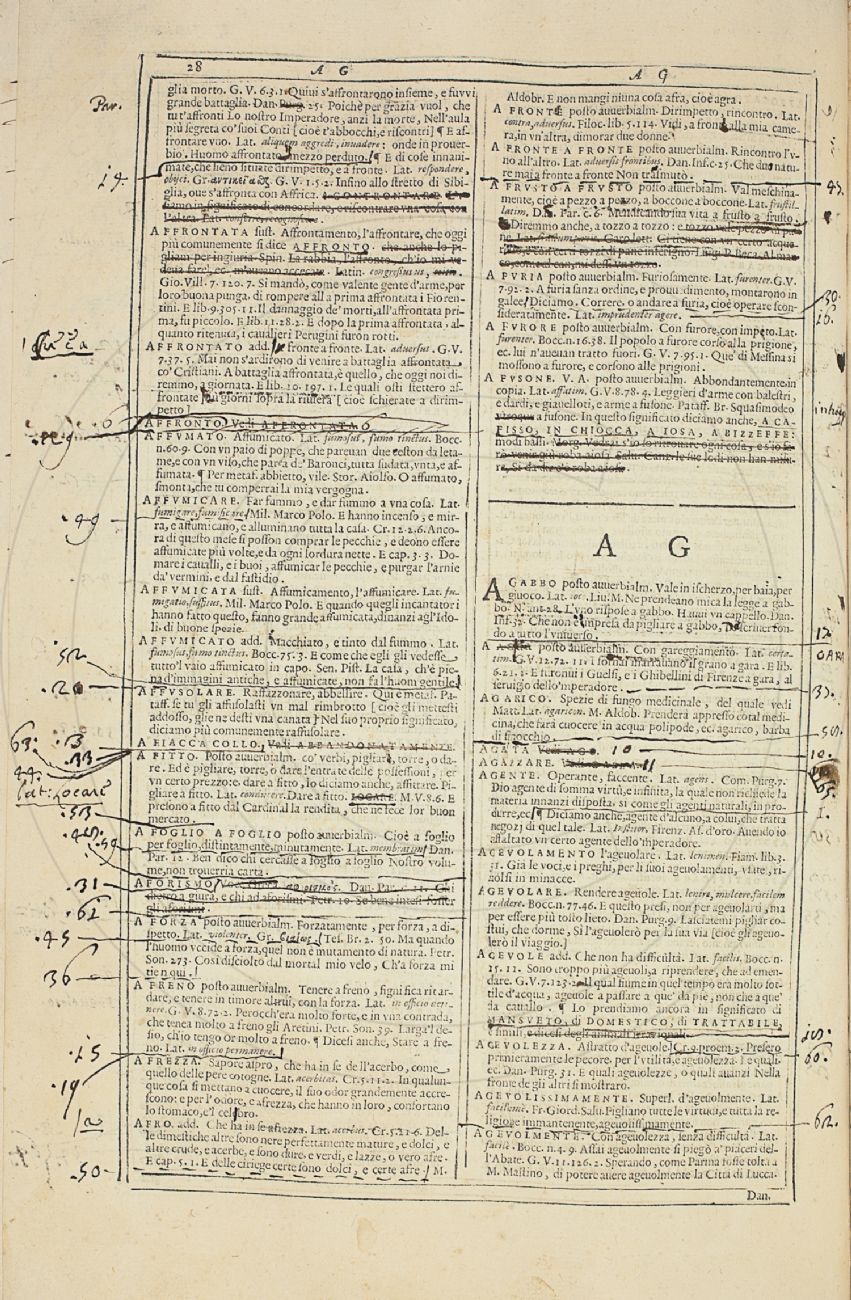 28
A G
A G
glia morto. G. V. 6.3.1. Quivi s'affrontarono insieme, e fu vvi
grande battaglia. Dan. Purg. 25. Poichè per grazia vuol, che
tu t'affronti Lo nostro Imperadore, anzi la morte, Nell'aula
più segreta co' suoi Conti [cioè t'abbocchi, e riscontri] ¶ E af-
frontare vuo. Lat. aliquem aggredi, invadere: onde in prouer-
bio. Huomo affrontato mezzo perduto. ¶ E di cose innani-
mate, che sieno situate dirimpetto, e a fronte. Lat. respondere,
G. V. 1.5.2. Infino allo stretto di Sibi-
glia, oue s'affronta con Affrica.
AFFRONTATA sust. Affrontamento, l'affrontare, che oggi
più comunemente si dice AFFRONTO.
Gio. Vill. 7. 120. 7. Si mandò, come valente gente d'arme, por
loro buona punga, di rompere all a prima affrontata i Fioren-
tini. E lib. 9. 305. 11. Il dannaggio de' morti, all'affrontata pri-
ma, fu piccolo. E lib. 11. 28. 2. E dopo la prima affrontata, al-
quanto ritenuta, i caualieri Perugini furon rotti.
AFFRONTATO add. fronte a fronte. Lat. adversus. G. V.
7.37.5. Mai non s'ardirono di venire a battaglia affrontata
co' Cristiani. A battaglia affrontata, è quello, che oggi noi di-
remmo, a giornata. E lib. 10. 197. 1. Le quali osti stettero af-
frontate più giorni sopra la riuiera [cioè schierate a dirim-
petto]
AFFRONTO. Vedi AFFRONTATA
AFFVMATO. Affumicato. Lat. fumosus, fumo tinctus. Bocc.
n. 60. 9. Con vn paio di poppe, che pareuan due ceston da leta-
me, e con vn viso, che parea de' Baronci, tutta sudata, vnta, e af-
fumata. ¶ Per metaf. abbietto, vile. Stor. Aiolfo. O affumato,
smonta, che tu comperrai la mia vergogna.
AFFVMICARE. Far fummo, e dar fummo a vna cosa. Lat.
fumigare, fumificare. Mil. Marco Polo. E hanno incenso, e mir-
ra, e affumicano, e alluminano tutta la casa. Cr. 12. 2. 6. Anco-
ra di questo mese si posson comprar le pecchie, e deono essere
affumicate più volte, e da ogni sordura nette. E cap. 3. 3. Do-
mare i caualli, e i buoi, affumicar le pecchie, e purgar l'arnie
da' vermini, e dal fastidio.
AFFVMICATA sust. Affumicamento, l'affumicare. Lat. fu-
migatio, suffitus. Mil. Marco Polo. E quando quegli incantatori
hanno fatto questo, fanno grande affumicata, dinanzi agl'Ido-
li, di buone spezie.
AFFVMICATO add. Macchiato, e tinto dal fummo. Lat.
fumosus, fumo tinctus. Bocc. 75. 3. E come che egli gli vedesse
tutto'l vaio affumicato in capo. Sen. Pist. La casa, ch'è pie-
na d'immagini antiche, e affumicate, non fa l'huom gentile.
AFFVSOLARE. Raffazzonare, abbellire. Qui è metaf. Pa-
taff. se tu gli affusolasti vn mal rimbrotto [cioè gli mettesti
addosso, glie ne desti vna canata] Nel suo proprio significato,
diciamo più comunemente raffusolare.
A FIACCA COLLO. Vedi ABBANDONATAMENTE.
A FITTO. Posto auuerbialm. co' verbi, pigliare, torre, o da-
re. Ed è pigliare, torre, o dare l'entrate delle possessioni, per
vn certo prezzo: e dare a fitto, lo diciamo anche, affittare. Pi-
gliare a fitto. Lat. conducere. Dare a fitto. LOCARE. M. V. 8. 6. E
presono a fitto dal Cardinal la rendita, che ne fece lor buon
mercato.
A FOGLIO A FOGLIO posto auuerbialm. Cioè a foglio
per foglio, distintamente, minutamente. Lat. membratim. Dan.
Par. 12. Ben dico chi cercasse a foglio a foglio Nostro volu-
me, non trouerria carta.
AFORISMO. Dan. Par. 11. Chi
dietro a giura, e chi ad aforismi. Petr. 10. Se bene intesi fosser
gli aforismi.
A FORZA posto auuerbialm. Forzatamente, per forza, a di-
spetto. Lat. violenter. Gr. Tes. Br. 2. 50. Ma quando
l'huomo vccide a forza, quel non è mutamento di natura. Petr.
Son. 273. Così disciolto dal mortal mio velo, Ch'a forza mi
tien qui.
A FRENO posto auuerbialm. Tenere a freno, significa ritar-
dare, e tenere in timore altrui, con la forza. Lat. in officio
G. V. 8. 72. 2. Perocch'era molto forte, e in vna contrada,
che tenea molto a freno gli Aretini. Petr. Son. 39. Larga'l de-
sio, ch'io tengo Or molto a freno. ¶ Dicesi anche, Stare a fre-
no. Lat. in officio permanere.
AFREZZA. Sapore aspro, che ha in se dell'acerbo, come,
quello delle pere cotogne. Lat. acerbitas. Cr. 5. 11. 2. In qualun-
que cosa si mettano a cuocere, il suo odor grandemente accre-
scono: e per l'odore, e afrezza, che hanno in loro, confortano
lo stomaco, e'l celabro.
AFRO. add. Che ha in se afrezza. Lat. acerbus. Cr. 5. 21. 6. Del-
le dimestiche altre sono nere perfettamente mature, e dolci, e
altre crude, e acerbe, e sono dure, e verdi, e lazze, o vero afre.
E cap. 5. 1. E delle ciriege certe sono dolci, e certe afre. M.
Aldobr. E non mangi niuna cosa afra, cioè agra.
A FRONTE posto auuerbialm. Dirimpetto, rincontro. Lat.
contra, adversus. Filoc. lib. 5. 114. Vidi, a fronte alla mia came-
ra, in vn'altra, dimorar due donne.
A FRONTE A FRONTE posto auuerbialm. Rincontro l'v-
no all'altro. Lat. adversis frontibus. Dan. Inf. c. 25. Che due natu-
re mai a fronte a fronte Non trasmutò.
A FRVSTO A FRVSTO posto auuerbialm. Val meschina-
mente, cioè a pezzo a pezzo, a boccone a boccone. Lat. frustil-
latim. Dan. Par. c. 6. Mendicando sua vita a frusto a frusto.
Diremmo anche, a tozzo a tozzo: e tozzo vale pezzo di pa-
ne.
A FVRIA posto auuerbialm. Furiosamente. Lat. furenter. G. V.
7. 92. 2. A furia sanza ordine, e prouuedimento, montarono in
galee. Diciamo. Correre, o andare a furia, cioè operare scon-
sideratamente. Lat. imprudenter agere.
A FVRORE posto auuerbialm. Con furore, con impeto. Lat.
furenter. Bocc. n. 16. 38. Il popolo a furore corso alla prigione,
ec. lui n'aueuan tratto fuori. G. V. 7. 95. 1. Que' di Messina si
mossono a furore, e corsono alle prigioni.
A FVSONE. V. A. posto auuerbialm. Abbondantemente in
copia. Lat. affatim. G. V. 8. 78. 4. Leggieri d'arme con balestri,
e dardi, e giauellotti, e arme a fusone. Pataff. Br. Squasimodeo
a fusone. In questo significato diciamo anche, A CA-
FISSO, IN CHIOCCA, A IOSA, A BIZZEFFE:
modi bassi.
A G
A GABBO posto auuerbialm. Vale in ischerzo, per baia, per
giuoco. Lat. ioc. Liu. M. Ne prendeano mica la legge a gab-
bo. N. ant. 28. L'vno rispose a gabbo. Hauui vn cappello. Dan.
Inf. 32. Che non è impresa da pigliare a gabbo, Descriuer fon-
do a tutto l'vniuerso.
A GARA posto auuerbialm. Con gareggiamento. Lat. certa-
tim. G. V. 12. 72. 11. i fornai mandauano il grano a gara. E lib.
6. 21. 3. E furonui i Guelfi, e i Ghibellini di Firenze a gara, al
seruigio dello'mperadore.
AGARICO. Spezie di fungo medicinale, del quale vedi
Matt. Lat. agaricon. M. Aldob. Prenderà appresso cotal medi-
cina, che farà cuocere in acqua polipode, ec. agarico, barba
di finocchio.
AGATA Vedi AGO. 10
AGAZZARE.
AGENTE. Operante, faccente. Lat. agens. Com. Purg. 7.
Dio agente di somma virtù, e infinita, la quale non richiede la
materia innanzi disposta, si come gli agenti naturali, in pro-
durre, ec. ¶ Diciamo anche, agente d'alcuno, a colui, che tratta
negozj di quel tale. Lat. Institor. Firenz. As. d'oro. Auendo io
assaltato vn certo agente dello'mperadore.
AGEVOLAMENTO l'ageuolare. Lat. lenimen. Fiam. lib. 3.
31. Già le voci, e i preghi, per li suoi ageuolamenti, vsate, ri-
uolsi in minacce.
AGEVOLARE. Rendere ageuole. Lat. lenire, mulcere, facilem
reddere. Bocc. n. 77. 46. E questo presi, non per ageuolarti, ma
per essere più tosto lieto. Dan. Purg. 9. Lasciatemi pigliar co-
stui, che dorme, Sì l'ageuolerò per la sua via [cioè gli ageuo-
lerò il viaggio.]
AGEVOLE add. Che non ha difficultà. Lat. facilis. Bocc. n.
15. 11. Sono troppo più ageuoli, a riprendere, che ad emen-
dare. G. V. 7. 123. 2. Il qual fiume in quel tempo era molto sot-
tile d'acqua, ageuole a passare a que' da piè, non che a que'
da cauallo. ¶ Lo prendiamo ancora in significato di
MANSVETO, di DOMESTICO, di TRATTABILE,
e simili, e dicesi degli animali irrazionali.
AGEVOLEZZA. Astratto d'ageuole. Cr. 2. proem. 2. Presero
primieramente le pecore, per l'vtilità, e ageuolezza. Le quali.
ec. Dan. Purg. 31. E quali ageuolezze, o quali auanzi Nella
fronte de gli altri si mostraro.
AGEVOLISSIMAMENTE. Superl. d'ageuolmente. Lat.
facilime. Fr. Giord. Salu. Pigliano tutte le virtudi, e tutta la re-
ligione immantenente, ageuolissimamente.
AGEVOLMENTE. Con ageuolezza, senza difficultà. Lat.
facile. Bocc. n. 4. 9. Assai ageuolmente si piegò a' piaceri del-
l'Abate. G. V. 11. 126. 2. Sperando, come Parma fosse tolta a
M. Mastino, di potere auere ageuolmente la Città di Lucca.
Dan.
Par.
19.
49
52
.20
63.
.3
.33
44.
lat: locare
.53
.59
.31
.62
.45
36
.25
.19
la
.50
43.
30.
16.
12.
GARA
10.
1.
60.
62.